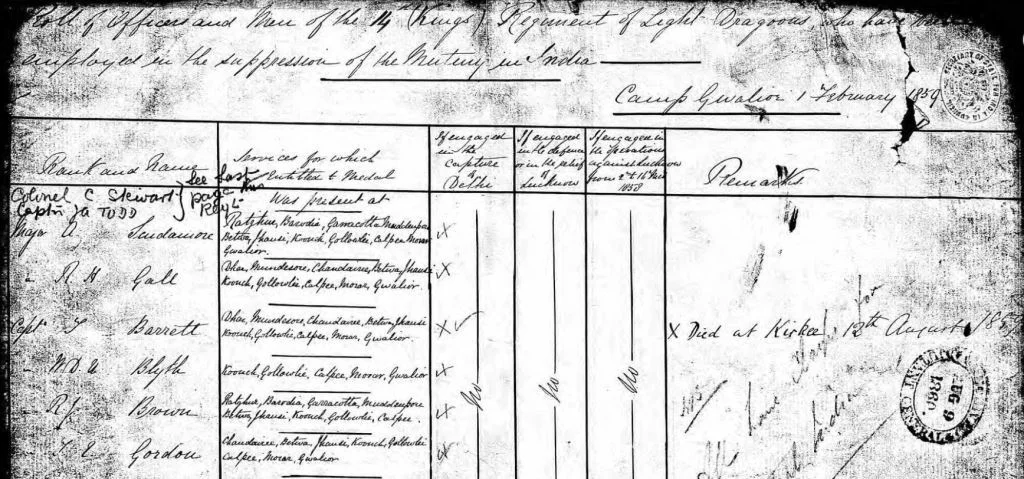 Roll of Officers and Men of the 14th (Kings) Regiment of Light Dragoons, who have been
employed in the suppression of the Mutiny in India
Camp Gwalior 1 February 1859
Rank and Name
Services for which
Entitled to Medal
If engaged
in the
Capture
of
Delhi
If engaged
in the defence
or in the relief
of
Lucknow
If engaged in
the operations
against Lucknow
from 2nd to 16 Mar
1858
Remarks
Colonel C Stewart
Captn Ja TODD
See last
page this
Regt
Was present at
Major A Scudamore
Ratghur, Barodia, Garracotta, Muddenpore
Betwa, Jhansi, Koonch, Gollowlie, Calpee, Morar
Gwalior.
X
" R H Gall
Dhar, Mundesore, Chandairee, Betwa, Jhansi
Koonch, Gollowlie, Calpee, Morar, Gwalior.
X
Capt T Barrett
Dhar, Mundesore, Chandairee, Betwa, Jhansi
Koonch, Gollowlie, Calpee, Morar, Gwalior.
X
X Died at Kirkee 12th August 1859
" W.D.A Blyth
Koonch, Gollowlie, Calpee, Morar, Gwalior
X
No
No
No
" R J Brown
Ratghur, Barodia, Garracotta, Muddenpore
Betwa, Jhansi, Koonch, Gollowlie, Calpee.
X
" E Gordon
Chandairee, Betwa, Jhansi, Koonch, Gollowlie
Calpee, Morar, Gwalior
X
AUG 9
1860